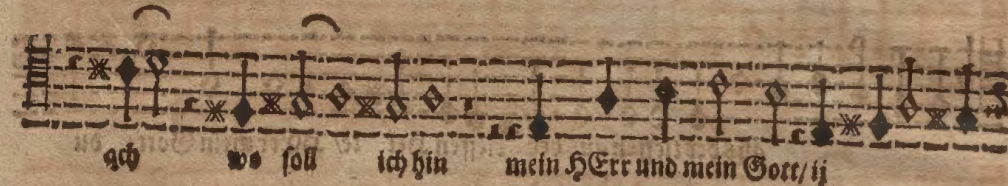 ach wo soll ich hin mein HErr und mein Gott/ ij